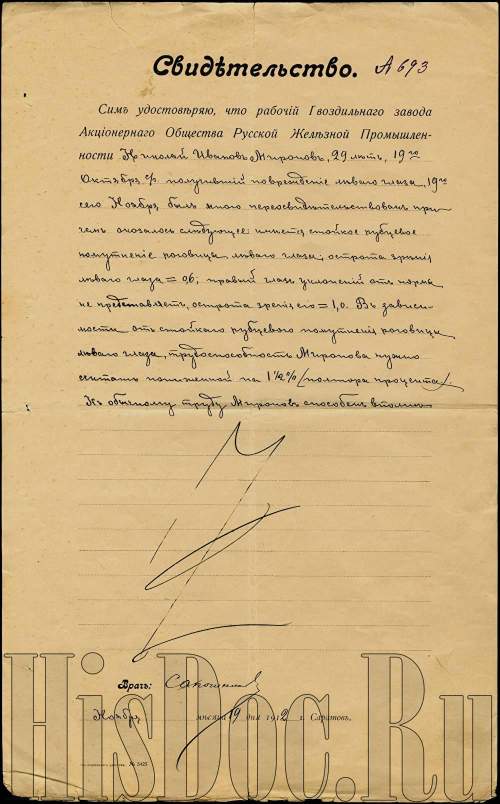 Свидѣтельство. А 693
Симъ удостовѣряю, что рабочій Гвоздильнаго завода
Акціонернаго Общества Русской Желѣзной Промышлен-
ности Николай Ивановъ Мироновъ, 29 лѣтъ, 19го
Октября с/г. получившій поврежденіе лѣваго глаза, 19го
сего Ноября былъ мною переосвидѣтельствованъ при-
чемъ оказалось слѣдующее: имѣется стойкое рубцовое
помутнѣніе роговицы лѣваго глаза; острота зрѣнія
лѣваго глаза = 0,6; правый глазъ уклоненій отъ нормы
не представляетъ, острота зрѣнія его = 1,0. Въ зависи-
мости отъ стойкаго рубцоваго помутнѣнія роговицы
лѣваго глаза, трудоспособность Миронова нужно
считать пониженной на 1 1/2 % (полтора процента).
Къ обычному труду Мироновъ способенъ вполнѣ
Врачъ:
Ноября мѣсяца 19 дня 1912 г. Саратовъ.
HisDoc.Ru